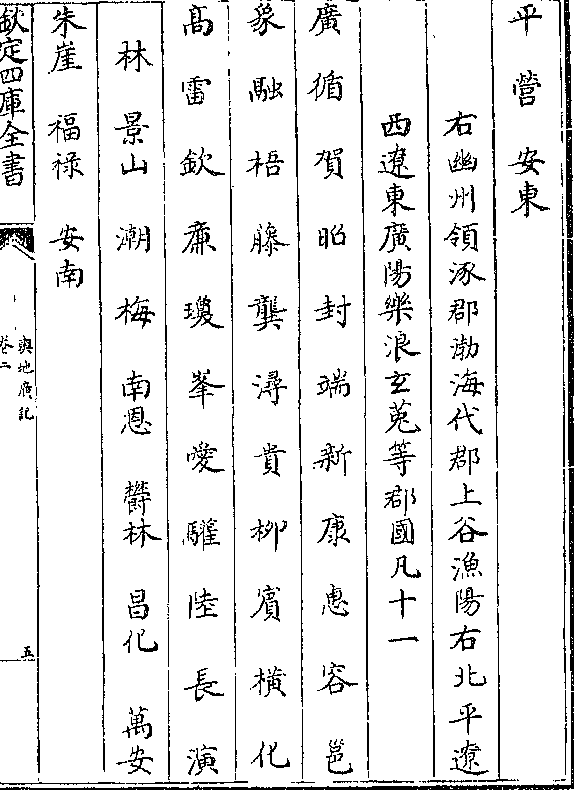 平 營 安東
右幽州領涿郡渤海代郡上谷漁陽右北平遼
西遼東廣陽樂浪玄菟等郡國凡十一
廣循賀昭封端新康惠容邕
象融梧藤龔潯貴柳賓橫化
高雷欽廉瓊峯嗳驩陸長演
林 景山 潮 梅 南恩 欝林 昌化 萬安
朱崖 福祿 安南
欽定四庫全書
輿地廣記
卷二
五